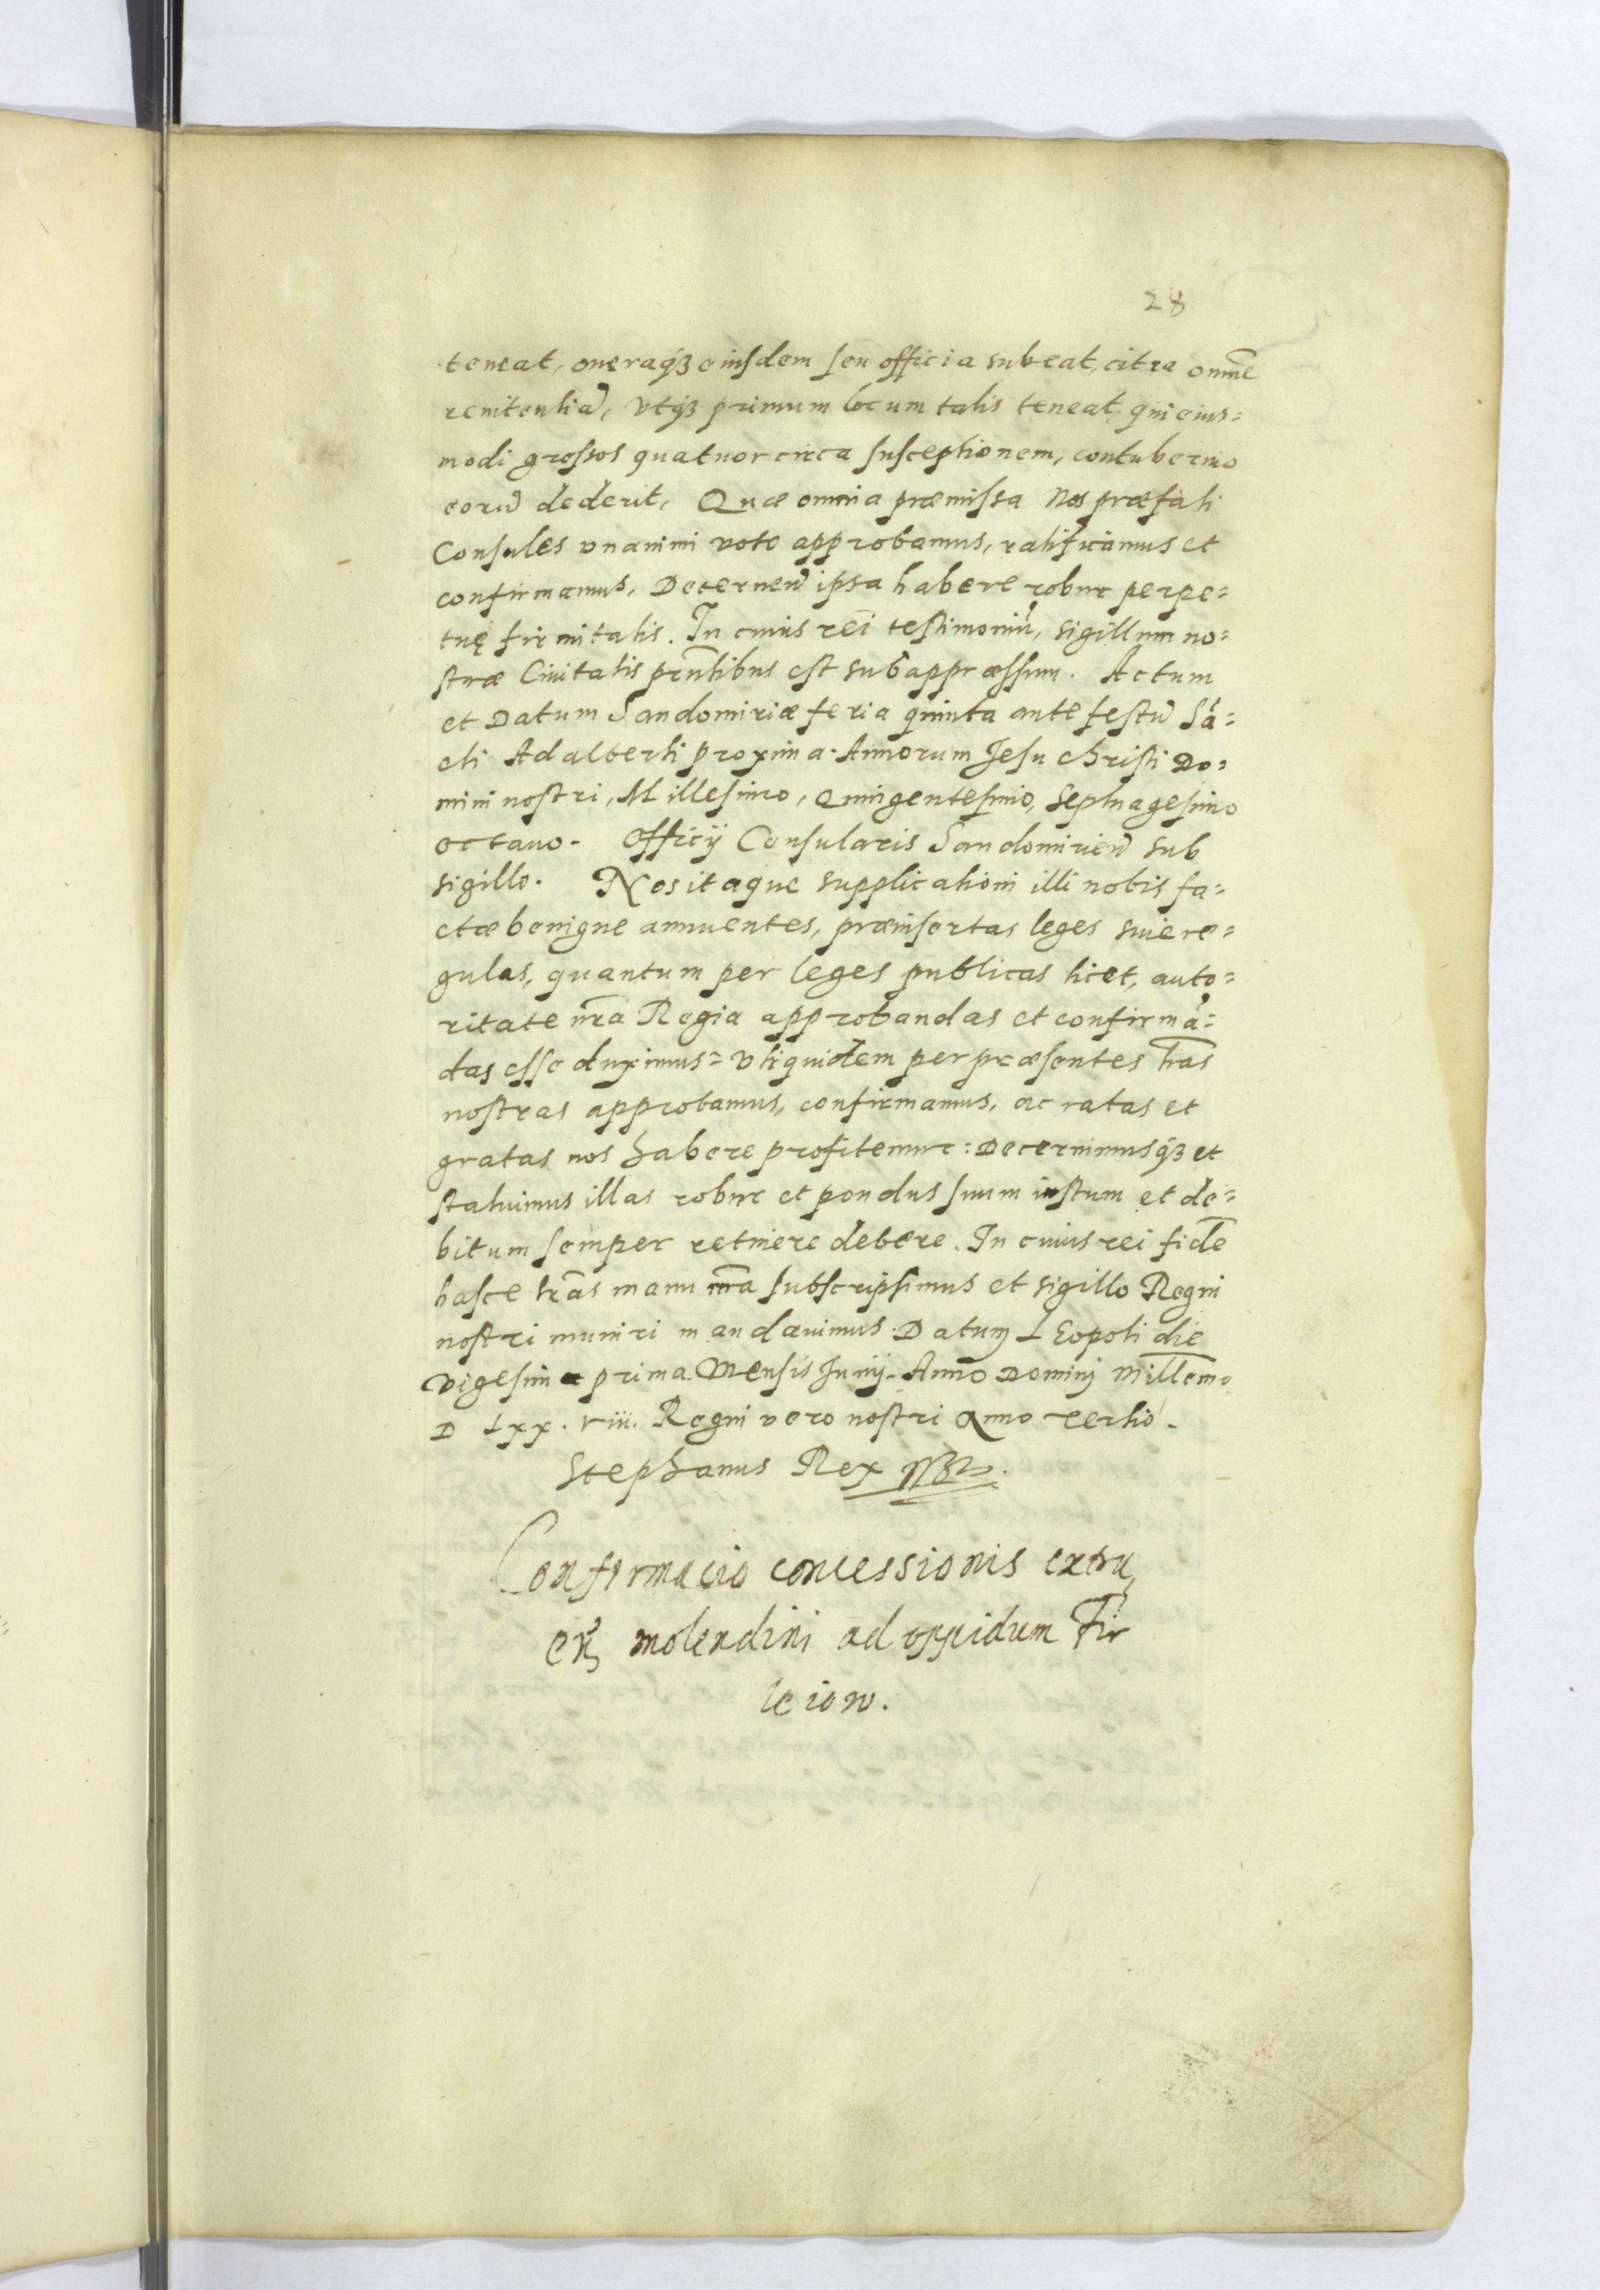 28
teneat, oneraqꝫ eiusdem seu officia subeat, citra omnē
renitentiā, vtqꝫ primum locum talis teneat, qui eius=
modi grossos quatuor circa susceptionem, contubernio
eorū dederit, Quæ omnia præmissa Nos præfati
Consules vnanimi voto approbamus, ratificamus et
confirmamus, Decernen̄ ipsa habere robur perpe=
tuę firmitatis. In cuius rei testimoniū, sigillum no=
stræ Ciuitatis pn̄tibus est subappræssum. Actum
et Datum Sandomiriæ feria quinta ante festū Sā=
cti Adalberti proxima. Annorum Jesu Christi Do=
mini nostri, Millesimo, Quingentesimo, Septuagesimo
octauo. Officij Consularis Sandomirien̄ sub
sigillo. Nos itaque supplicationi illi nobis fa=
ctæ benigne annuentes, præinsertas leges siue re=
gulas, quantum per leges publicas licet, auto=
ritate nr̄a Regia approbandas et confirmā=
das esse duximus= Vti quidem per præsentes lr̄as
nostras approbamus, confirmamus, ac ratas et
gratas nos habere profitemur: Decernimusqꝫ et
statuimus illas robur et pondus suum iustum et de=
bitum semper retinere debere. In cuius rei fidē
hasce lr̄as manu nr̄a subscripsimus et sigillo Regni
nostri muniri mandauimus. Datum LEopoli die
Vigesima prima Mensis Junij. Anno Dominj Millemo
D Lxx. viii. Regni vero nostri Anno tertio.
Stephanus Rex
Confirmacio concessionis extru
molendini ad oppidum Fir
leiow.